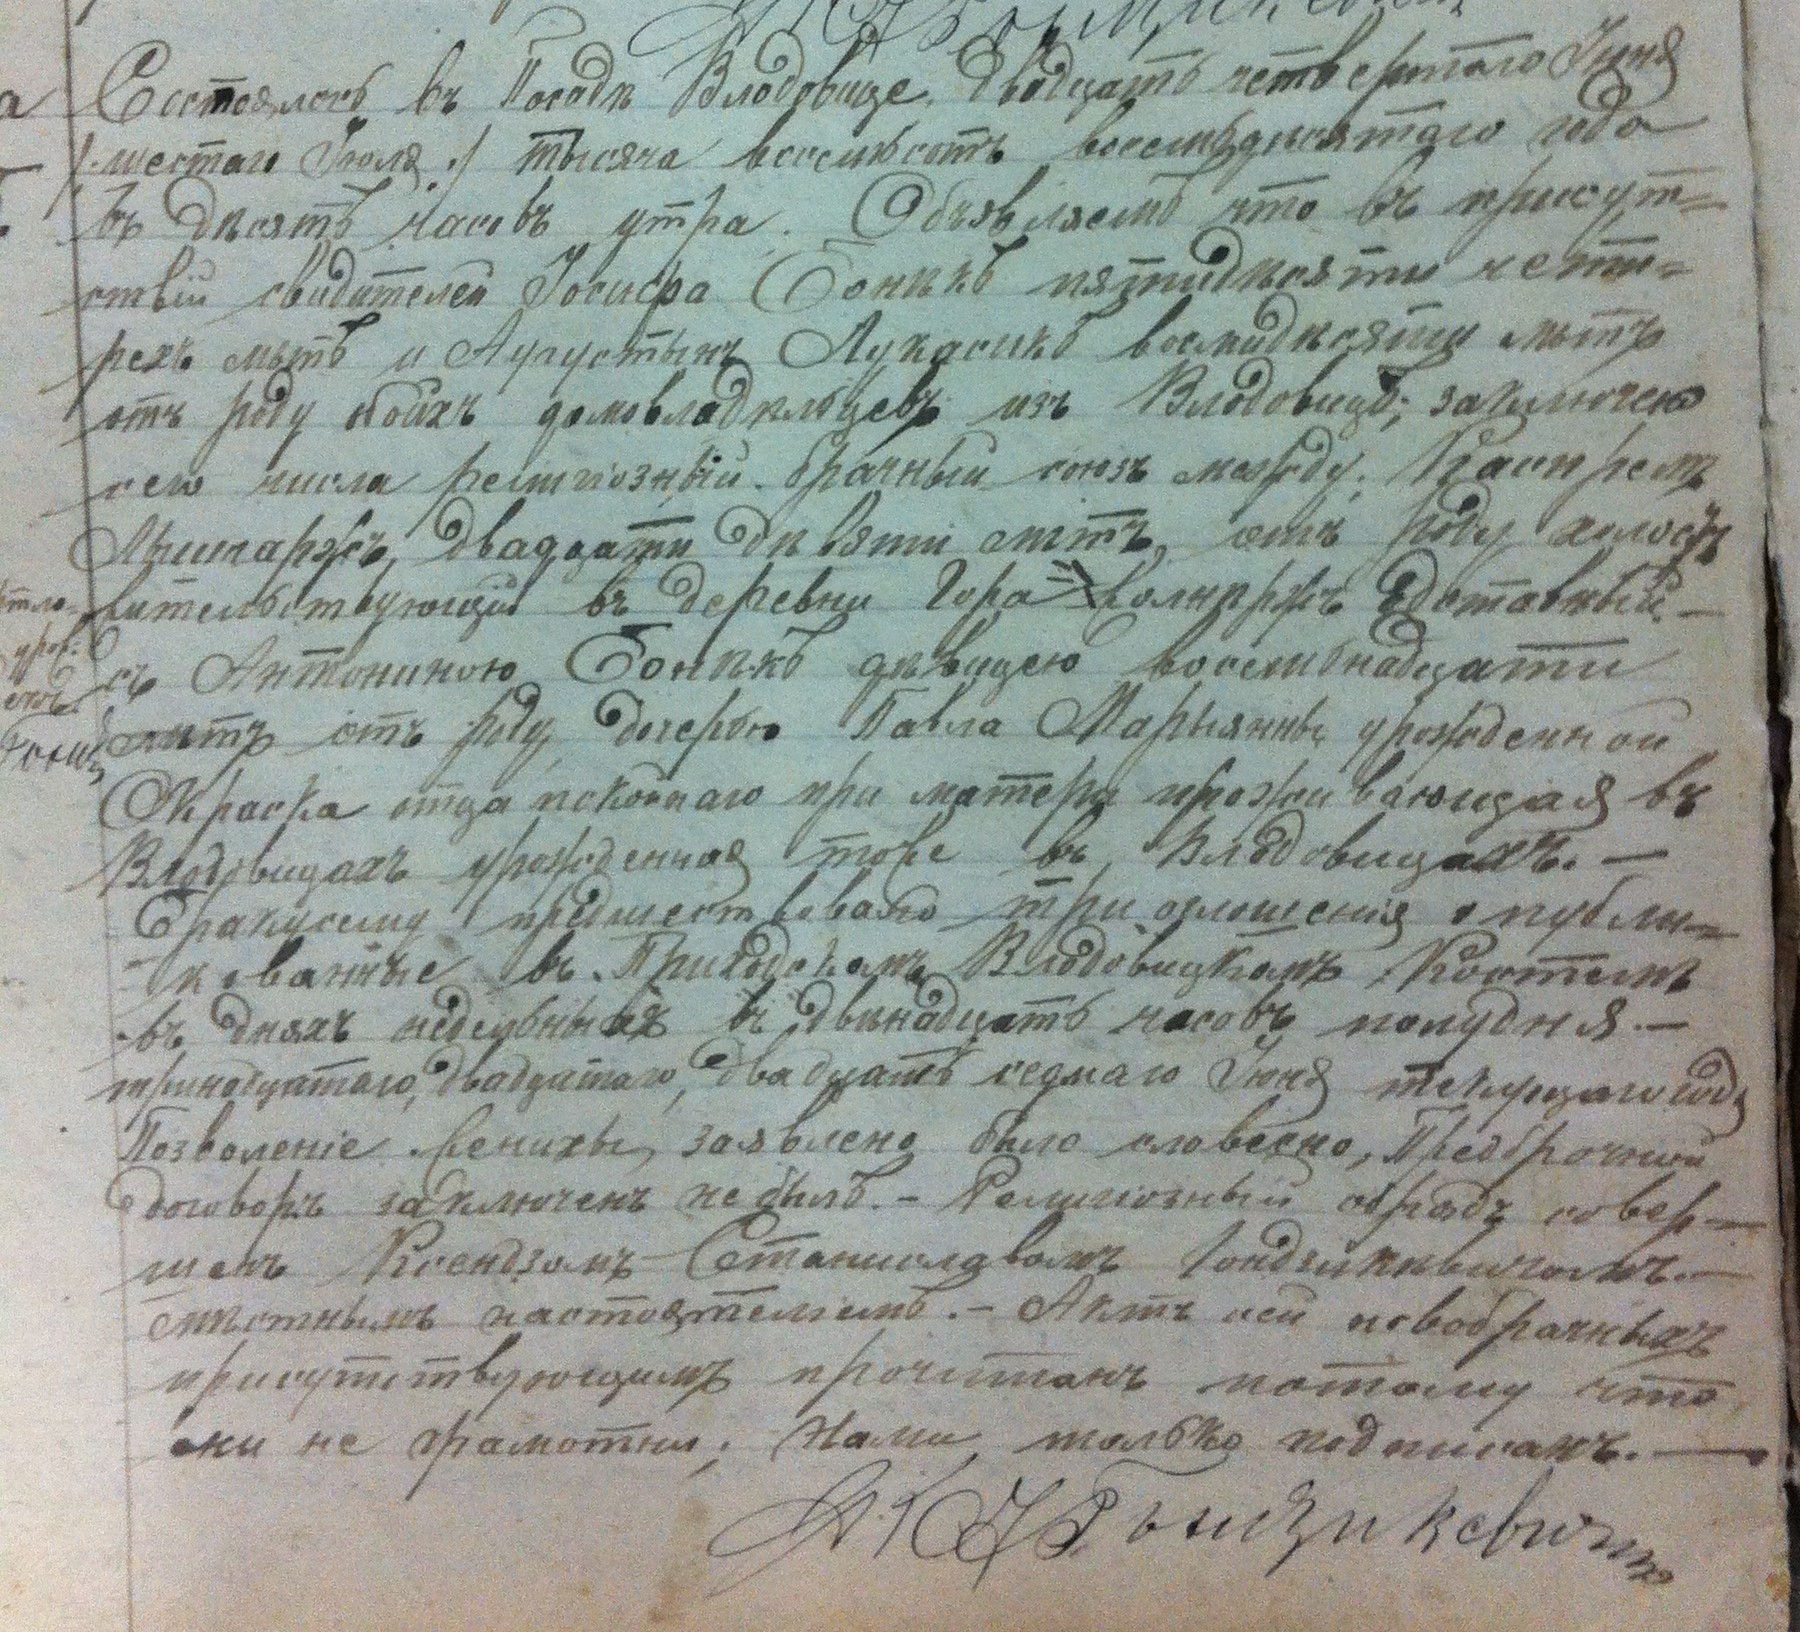 Состоялось въ Посадѣ Влодовице, двадцать четвертаго Іюня
/:шестаго Іюля:/ тысяча восемьсотъ восемьдесятаго года
въ дѣсять часовъ утра. Объявляемъ что въ присут=
ствіи свидѣтелей Іосифа Бонѣкъ пятидѣсяти четы=
рехъ лѣтъ и Аугустынъ Лукасикъ восмидѣсяти лѣтъ
отъ роду обоихъ домовладѣльцевъ изъ Влодовицъ; заключено
сего числа религіозный брачный союзъ между, Каспремъ
двадцати дѣвяти лѣтъ, отъ роду холостъ
жительствующій въ деревни Гора
съ Антониною Бонѣкъ дѣвицею восемьнадцати
лѣтъ отъ роду, дочерью Павла Марыянны урожденной
Скраска отца покойнаго при матери проживающая въ
Влодовицахъ урожденная тоже въ Влодовицахъ. —
Бракусему предшествовало три оглошенія опубли=
кованные въ Приходскомъ Влодовицкомъ Костелѣ
въ дняхъ недельныхъ въ двѣнадцать часовъ полудня. —
тринадцатаго, двадцатаго, двадцать седмаго Іюня текущаго года
Позволеніе заявлено было словесно, Предбрачной
договоръ заключенъ не былъ. — Религіозный обрядъ совер—
шенъ Ксендзомъ Станиславомъ
мѣстнымъ настоятелемъ. — Актъ сей новобрачныхъ
присутствующимъ прочитанъ потому что
они не грамотны; Нами только подписанъ. —